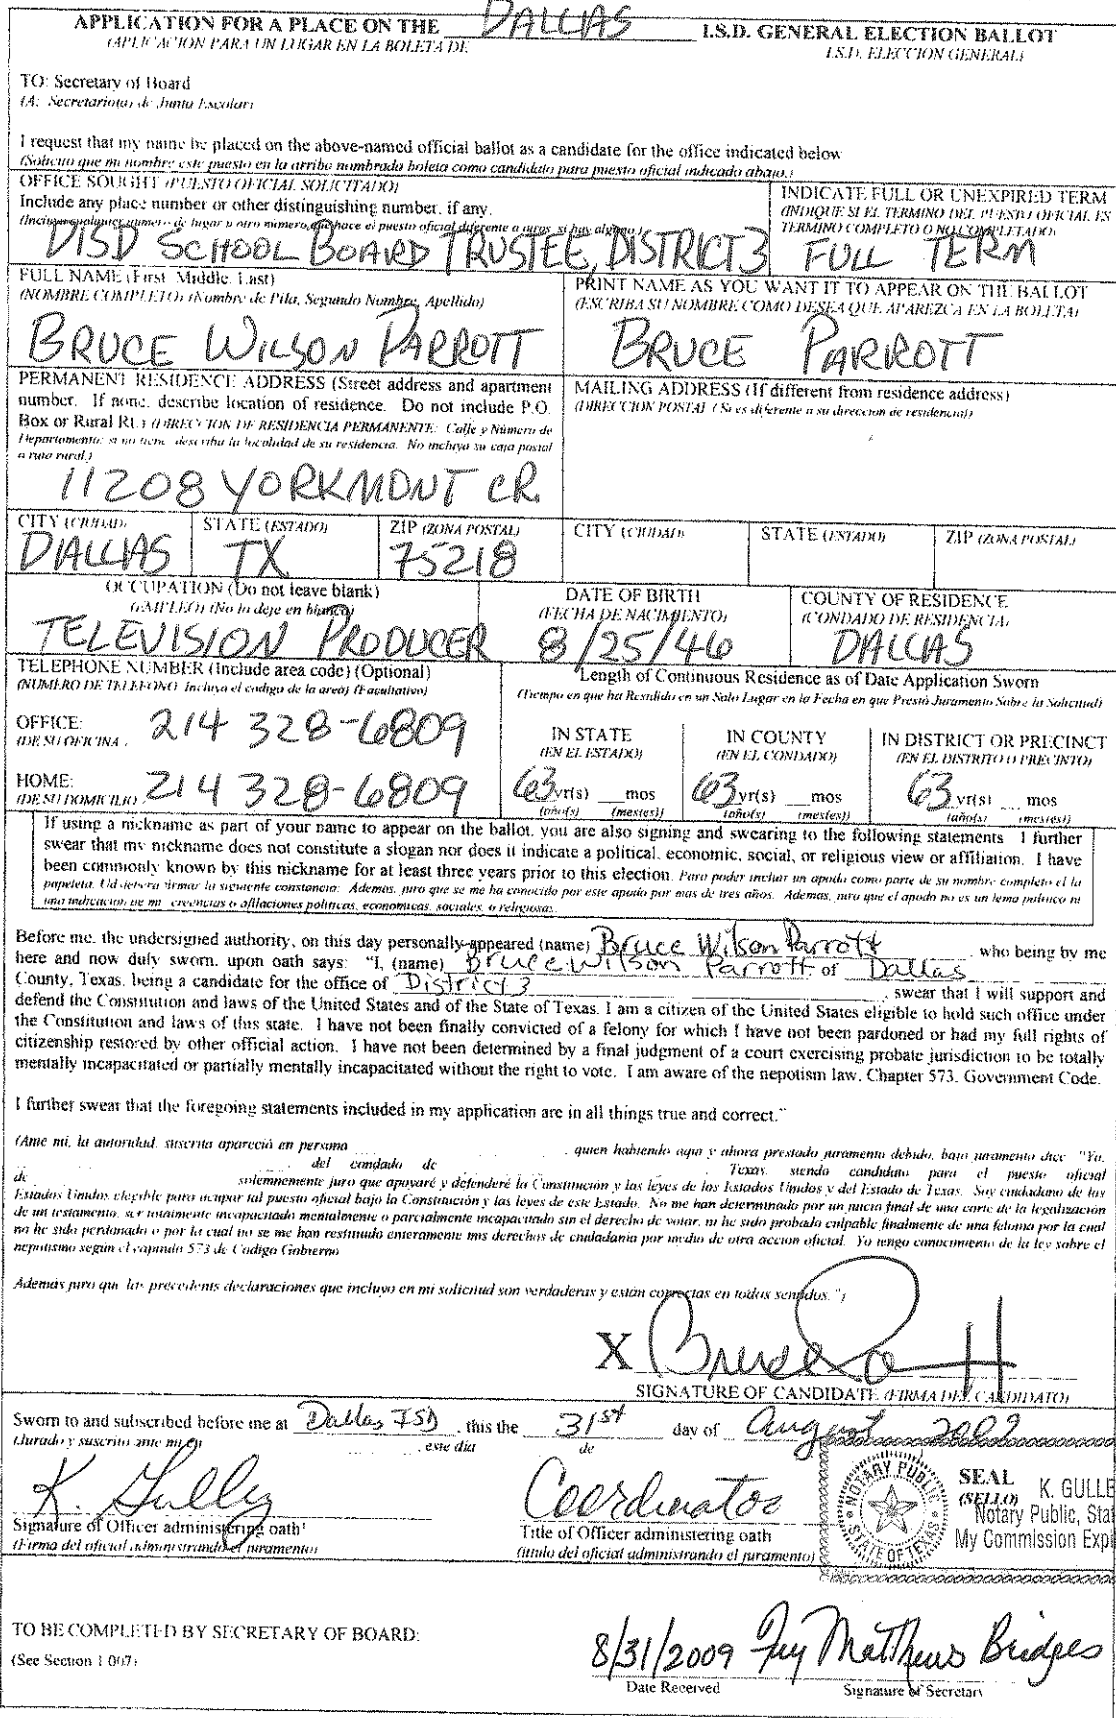 APPLICATION FOR A PLACE ON THE DALLAS I.S.D. GENERAL ELECTION BALLOT
(APLICACION PARA UN LUGAR EN LA BOLETA DE I.S.D. ELECCION GENERAL)
TO: Secretary of Board
(A: Secretario(a) de Junta Escolar)
I request that my name be placed on the above-named official ballot as a candidate for the office indicated below
(Solicito que mi nombre este puesto en la arriba nombrada boleta como candidato para puesto oficial indicado abajo.)
OFFICE SOUGHT (PUESTO OFICIAL SOLICITADO)
Include any place number or other distinguishing number, if any.
DISD SCHOOL BOARD TRUSTEE, DISTRICT 3
INDICATE FULL OR UNEXPIRED TERM
(INDIQUE SI EL TERMINO DEL PUESTO OFICIAL ES
TERMINO COMPLETO O NO COMPLETADO)
FULL TERM
FULL NAME (First, Middle, Last)
(NOMBRE COMPLETO) (Nombre de Pila, Segundo Nombre, Apellido)
BRUCE WILSON PARROTT
PRINT NAME AS YOU WANT IT TO APPEAR ON THE BALLOT
(ESCRIBA SU NOMBRE COMO DESEA QUE APAREZCA EN LA BOLETA)
BRUCE PARROTT
PERMANENT RESIDENCE ADDRESS (Street address and apartment
number. If none, describe location of residence. Do not include P.O.
Box or Rural Rt.) (DIRECCION DE RESIDENCIA PERMANENTE: Calle y Número de
Departamento: si no tiene, describa la localidad de su residencia. No incluya su caja postal
o ruta rural.)
11208 YORKMONT CR.
MAILING ADDRESS (If different from residence address)
(DIRECCION POSTAL (Si es diferente a su direccion de residencia))
CITY (CIUDAD)
DALLAS
STATE (ESTADO)
TX
ZIP (ZONA POSTAL)
75218
CITY (CIUDAD)
STATE (ESTADO)
ZIP (ZONA POSTAL)
OCCUPATION (Do not leave blank)
(EMPLEO) (No lo deje en blanco)
TELEVISION PRODUCER
DATE OF BIRTH
(FECHA DE NACIMIENTO)
8/25/46
COUNTY OF RESIDENCE
(CONDADO DE RESIDENCIA)
DALLAS
TELEPHONE NUMBER (Include area code) (Optional)
(NUMERO DE TELEFONO) Incluya el codigo de la area) (Facultativo)
OFFICE: 214 328-6809
(DE SU OFICINA)
HOME: 214 328-6809
(DE SU DOMICILIO)
Length of Continuous Residence as of Date Application Sworn
(Tiempo en que ha Residido en un Solo Lugar en la Fecha en que Prestó Juramento Sobre la Solicitud)
IN STATE
(EN EL ESTADO)
63 yr(s) ___ mos
(año(s) (mes(es))
IN COUNTY
(EN EL CONDADO)
63 yr(s) ___ mos
(año(s) (mes(es))
IN DISTRICT OR PRECINCT
(EN EL DISTRITO O PRECINTO)
63 yr(s) ___ mos
(año(s) (mes(es))
If using a nickname as part of your name to appear on the ballot, you are also signing and swearing to the following statements I further
swear that my nickname does not constitute a slogan nor does it indicate a political, economic, social, or religious view or affiliation. I have
been commonly known by this nickname for at least three years prior to this election. Para poder incluir un apodo como parte de su nombre completo el la
papeleta, Ud debera firmar la siguiente constancia: Ademas, juro que se me ha conocido por este apodo por mas de tres años. Ademas, juro que el apodo no es un lema politico ni
una indicacion de mi creencias o afiliaciones politicas, economicas, sociales, o religiosas.
Before me, the undersigned authority, on this day personally appeared (name) Bruce Wilson Parrott who being by me
here and now duly sworn, upon oath says: "I, (name) Bruce Wilson Parrott of Dallas
County, Texas, being a candidate for the office of District 3, swear that I will support and
defend the Constitution and laws of the United States and of the State of Texas. I am a citizen of the United States eligible to hold such office under
the Constitution and laws of this state. I have not been finally convicted of a felony for which I have not been pardoned or had my full rights of
citizenship restored by other official action. I have not been determined by a final judgment of a court exercising probate jurisdiction to be totally
mentally incapacitated or partially mentally incapacitated without the right to vote. I am aware of the nepotism law, Chapter 573, Government Code.
I further swear that the foregoing statements included in my application are in all things true and correct."
(Ante mi, la autoridad, suscrita apareció en persona quien habiendo aqui y ahora prestado juramento debido, bajo juramento dice "Yo,
del condado de Texas, siendo candidato para el puesto oficial
de solemnemente juro que apoyaré y defenderé la Constitución y las leyes de los Estados Unidos y del Estado de Texas. Soy ciudadano de los
Estados Unidos elegible para ocupar tal puesto oficial bajo la Constitución y las leyes de este Estado. No me han determinado por un juicio final de una corte de la legalización
de un testamento, ser totalmente incapacitado mentalmente o parcialmente incapacitado sin el derecho de votar, ni he sido probado culpable finalmente de una felonia por la cual
no he sido perdonado o por la cual no se me han restituido enteramente mis derechos de ciudadania por medio de otra accion oficial. Yo tengo conocimiento de la ley sobre el
nepotismo según el capitulo 573 de Codigo Gobierno
Además juro que las precedents declaraciones que incluyo en mi solicitud son verdaderas y están correctas en todos sentidos.")
X Bruce Parrott
SIGNATURE OF CANDIDATE (FIRMA DEL CANDIDATO)
Sworn to and subscribed before me at Dallas ISD, this the 31st day of August 2009
(Jurado y suscrito ante mi en este dia de
K. Gulley
Signature of Officer administering oath
(Firma del oficial administrando el juramento)
Coordinator
Title of Officer administering oath
(titulo del oficial administrando el juramento)
NOTARY PUBLIC
STATE OF TEXAS
SEAL
(SELLO)
K. GULLE
Notary Public, Sta
My Commission Expi
TO BE COMPLETED BY SECRETARY OF BOARD:
(See Section 1.007)
8/31/2009 Fey Matthews Bridges
Date Received
Signature of Secretary